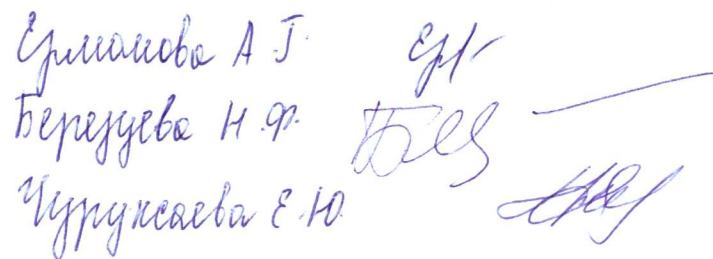 Ермакова А Г.
Березуева Н.Ф.
Чурунсаева Е.Ю.